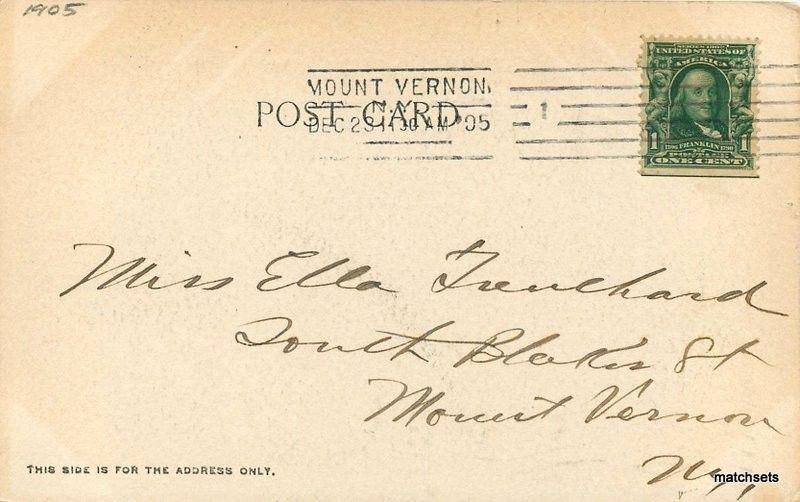 1905
SERIES 1902
UNITED STATES OF
AMERICA
MOUNT VERNON
POST CARD
DEC 29 11 30 AM '05
1
1
1706 FRANKLIN 1790
POSTAGE
ONE CENT
Miss Ella Trenchard
South
St
Mount Vernon
NY
THIS SIDE IS FOR THE ADDRESS ONLY.
matchsets